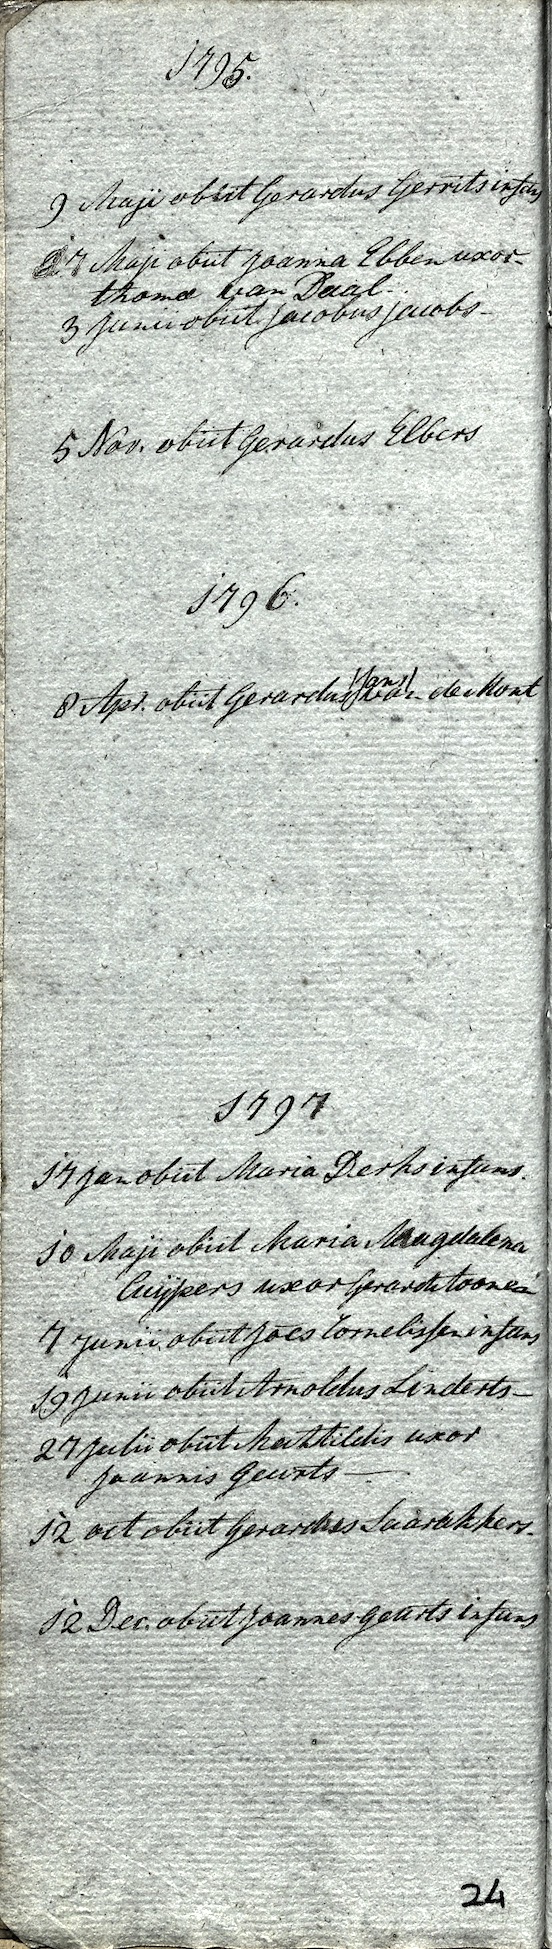 1795.
9 Maji obiit Gerardus Gerrits infans
27 Maji obiit Joanna Ebben uxor
thomæ van Daal.
3 Junii obiit Jacobus Jacobs
5 Nov. obiit Gerardus Elbers
1796.
8 Apr. obiit Gerardus (Jans) van de Mont
1797
17 Jan obiit Maria Derks infans.
10 Maji obiit Maria Magdalena
Cuÿpers uxor Gerardi toonen
7 Junii obiit Joes Cornelissen infans
19 Junii obiit Arnoldus Linderts
27 Julii obiit Mechtildis uxor
Joannis Geurts
12 oct obiit Gerardus Saarakkers
12 Dec. obiit Joannes Geurts infans
24